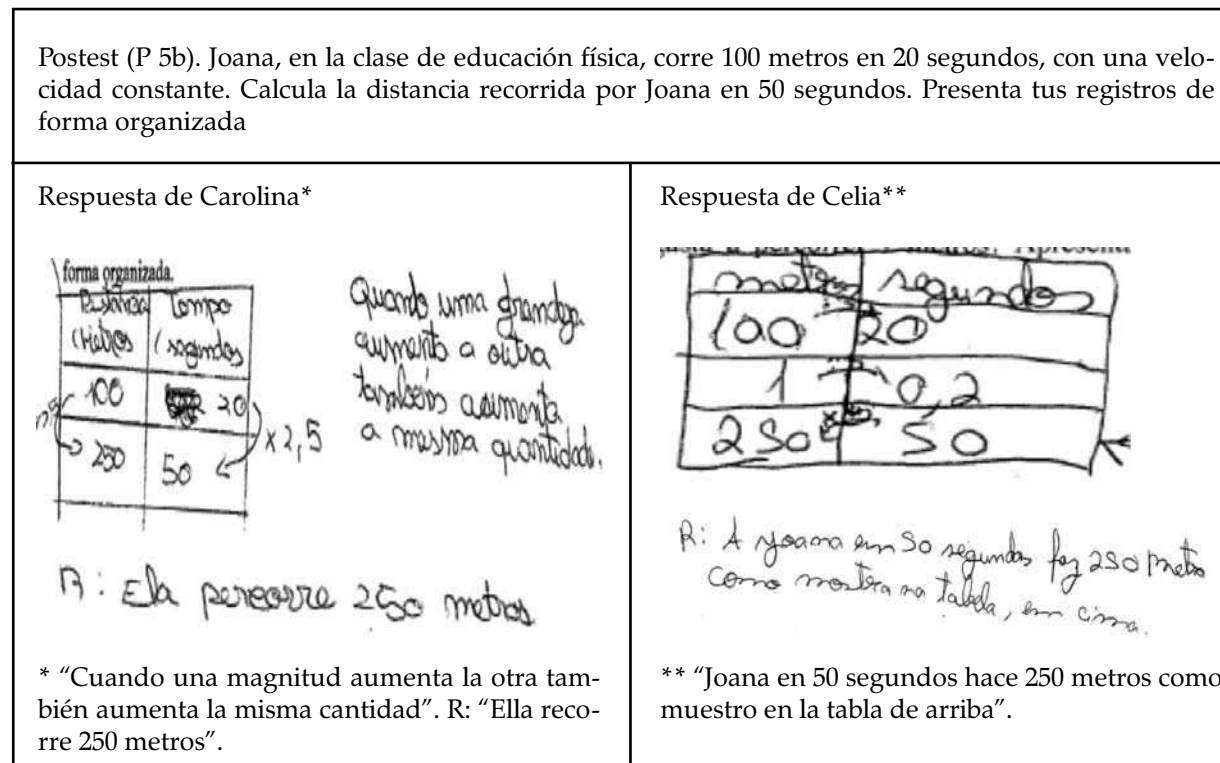 Postest (P 5b). Joana, en la clase de educación física, corre 100 metros en 20 segundos, con una velo-
cidad constante. Calcula la distancia recorrida por Joana en 50 segundos. Presenta tus registros de
forma organizada
Respuesta de Carolina*
forma organizada.
Distância Tempo
(Metros (segundos
100 20
250 50
x 2,5
Quando uma grandeza
aumenta a outra
também aumenta
a mesma quantidade.
R: Ela percorre 250 metros
* “Cuando una magnitud aumenta la otra tam-
bién aumenta la misma cantidad”. R: “Ella reco-
rre 250 metros”.
Respuesta de Celia**
metros segundos
100 20
1 0,2
250 50
R: A Joana em 50 segundos fez 250 metros
como mostra na tabela, em cima.
** “Joana en 50 segundos hace 250 metros como
muestro en la tabla de arriba”.